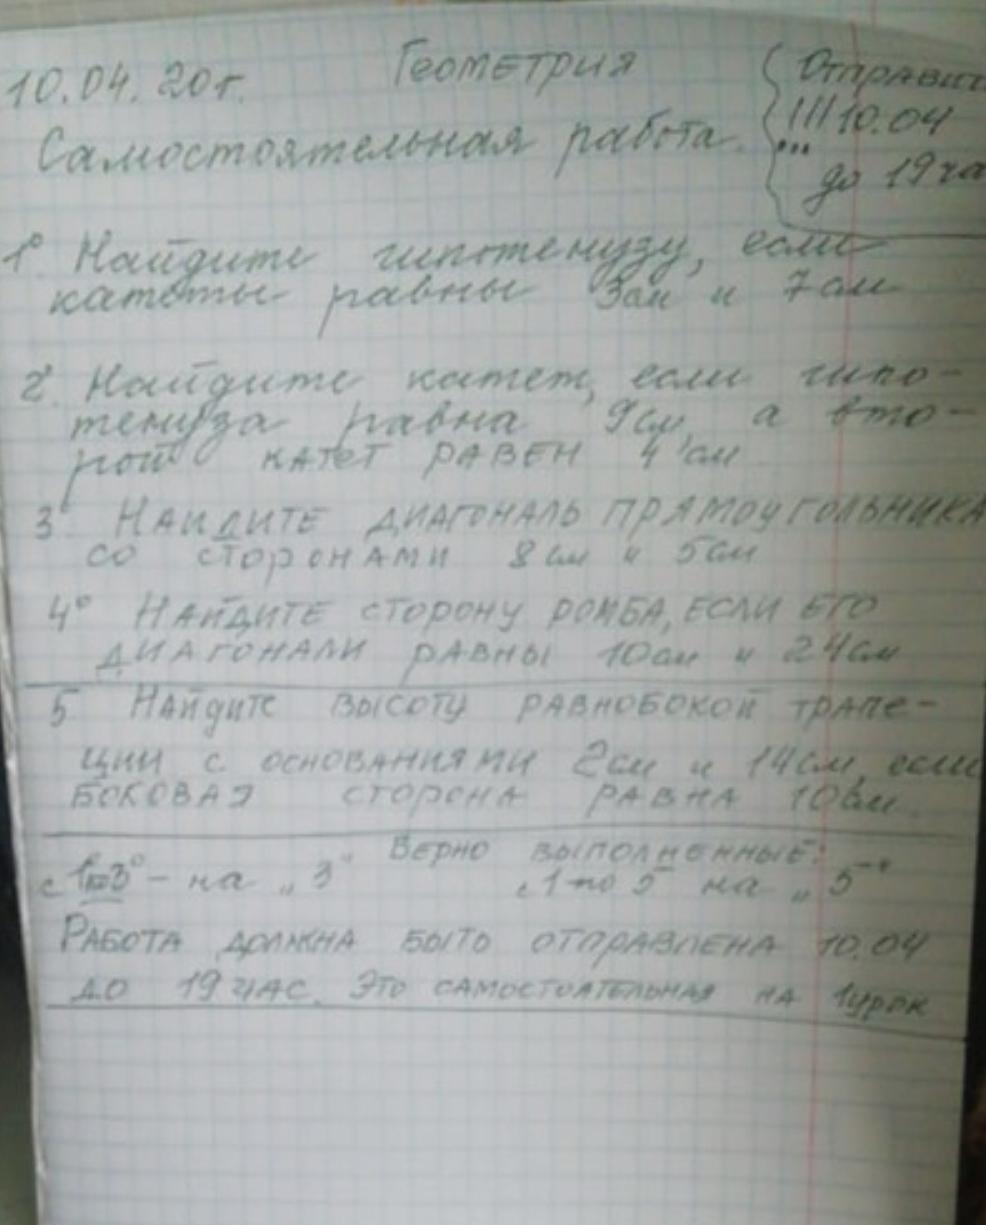 10.04.20г. Геометрия
Самостоятельная работа.
Отправит
!!! 10.04
до 19 ча
1° Найдите гипотенузу, если
катеты равны 3см и 7см
2° Найдите катет, если гипо-
тенуза равна 9см, а вто-
рой катет РАВЕН 4 см
3° НАЙДИТЕ ДИАГОНАЛЬ ПРЯМОУГОЛЬНИКА
СО СТОРОНАМИ 8см и 5см
4° НАЙДИТЕ СТОРОНУ РОМБА, ЕСЛИ ЕГО
ДИАГОНАЛИ РАВНЫ 10см и 24см
5 НАЙДИТЕ ВЫСОТУ РАВНОБОКОЙ ТРАПЕ-
ЦИИ С ОСНОВАНИЯМИ 2см и 14см, если
БОКОВАЯ СТОРОНА РАВНА 10см.
ВЕРНО ВЫПОЛНЕННЫЕ:
с 1по3° - на „3" с 1 по 5 на „5"
РАБОТА ДОЛЖНА БЫТЬ ОТПРАВЛЕНА 10.04
ДО 19 ЧАС. ЭТО САМОСТОЯТЕЛЬНАЯ НА 1урок